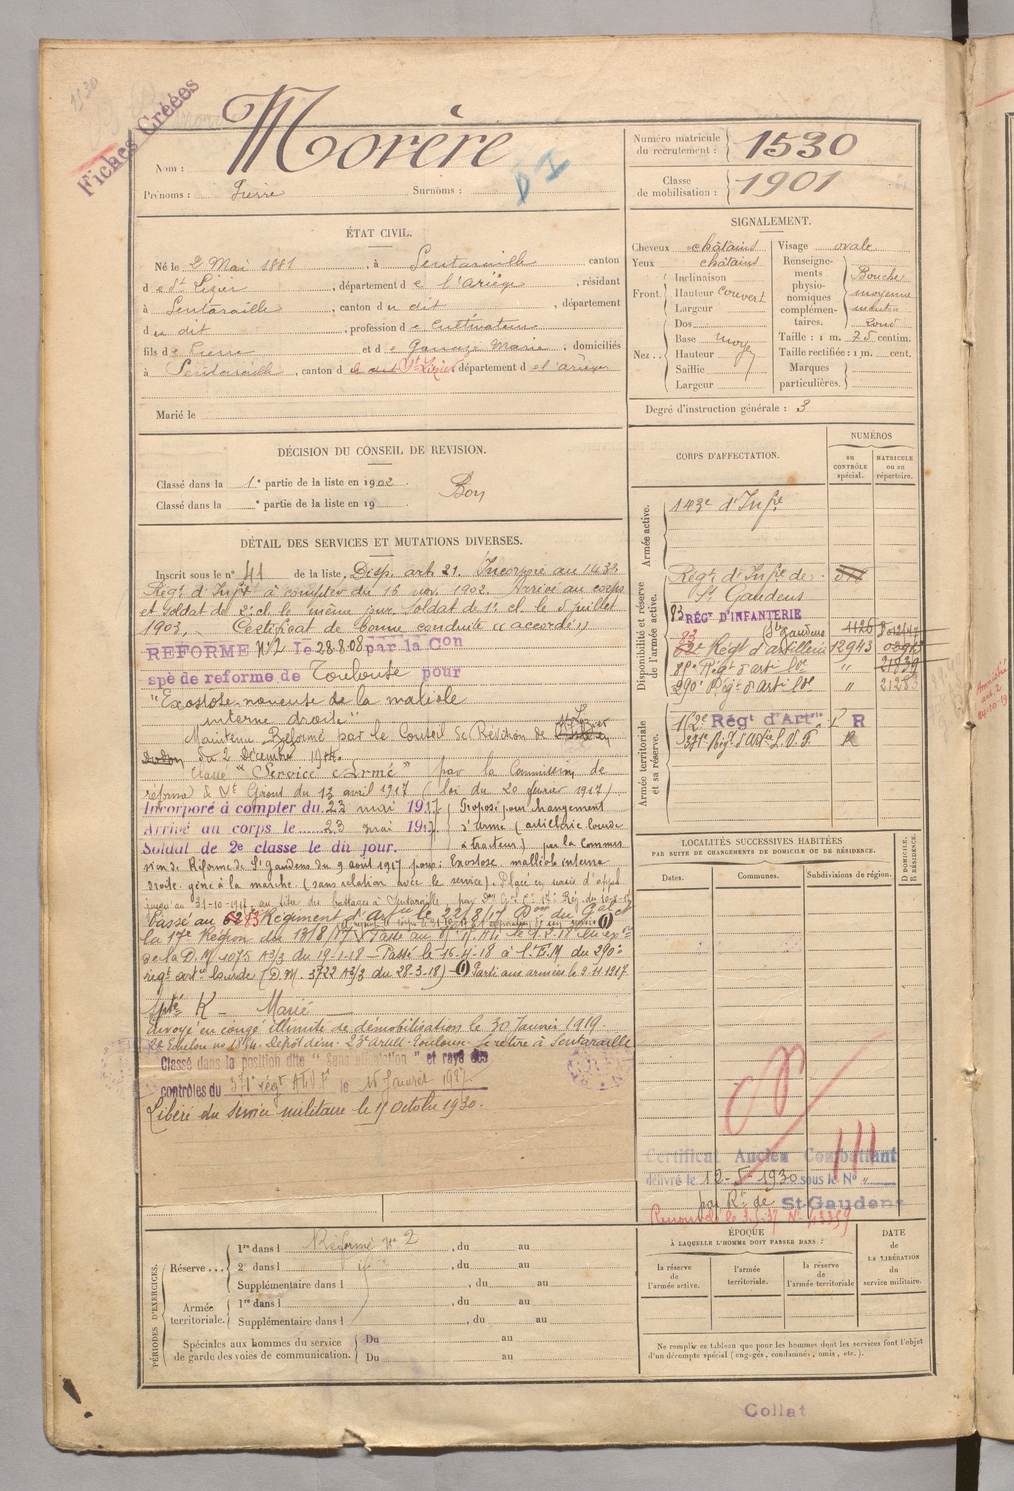 1530
Fiches Créées
Nom : Morère
Prénoms : Pierre Surnoms :
D I
Numéro matricule du recrutement : 1530
Classe de mobilisation : 1901
ÉTAT CIVIL.
Né le 2 Mai 1881, à Sentaraille canton
de St Lizier, département de l'ariège, résidant
à Sentaraille, canton du dit, département
du dit, profession de Cultivateur
fils de Pierre et de Marie, domiciliés
à Sentaraille, canton de St Lizier département de l'ariège
Marié le
SIGNALEMENT.
Cheveux châtains
Yeux châtains
Front. Inclinaison
Hauteur couvert
Largeur
Nez .. Dos
Base moyen
Hauteur
Saillie
Largeur
Visage ovale
Renseignements physionomiques complémentaires. Bouche moyenne menton rond
Taille : 1 m. 75 centim.
Taille rectifiée : 1 m. cent.
Marques particulières.
Degré d'instruction générale : 3
DÉCISION DU CONSEIL DE REVISION.
Classé dans la 1e partie de la liste en 1902
Classé dans la e partie de la liste en 19
Bon
DÉTAIL DES SERVICES ET MUTATIONS DIVERSES.
Inscrit sous le n° 41 de la liste. Disp. art. 21. Incorporé au 143e
Régt d'Infie à compter du 16 nov. 1902. Arrivé au corps
et soldat de 2e cl. le même jour. Soldat de 1e cl. le 5 juillet
1903. Certificat de bonne conduite "accordé"
REFORME N°2 le 28.8.08 par la Con
spéc de reforme de Toulouse pour
"Exostose noueuse de la maléole
interne droite"
Maintenu Réformé par le Conseil de Révision de St Lizier
du 2 Décembre 1914.
Classé "Service Armé" par la Commission de
réforme de St Girons du 13 avril 1917 (loi du 20 février 1917)
Incorporé à compter du 23 mai 1917
Arrivé au corps le 23 mai 1917.
Soldat de 2e classe le dit jour.
Proposé pour changement
d'arme (artillerie lourde
à tracteur) par la Commis
sion de Réforme de St Gaudens du 9 août 1917 pour: Exostose malléole interne
droite, gêne à la marche. (sans relation avec le service). Placé en sursis d'appel
jusqu'au 31-10-1917 au titre du battage à Sentaraille
Passé au 83 Régiment d'Artie le 22/8/17 Don du Gal Ct
la 17e Région du 13/8/17. Passé au le 9.2.18 en ex on
de la D.M. 1075 A2/3 du 19-1-18 - Passé le 16-4-18 à l'E.M du 290e
régt artie lourde (D.M. 3722 A2/3 du 28-3-18) - Parti aux armées le 9.11.1917.
Marié
Envoyé en congé illimité de démobilisation le 30 Janvier 1919.
Echelon no 1884. Dépôt dém. 23e artill. Toulouse. Se retire à Sentaraille
Classé dans la position dite "sans affectation" et rayé des
contrôles du 371e régt ALVF le 15 Janvier 1927
Libéré du service militaire le 15 Octobre 1930.
CORPS D'AFFECTATION.
NUMÉROS
au CONTRÔLE spécial.
MATRICULE ou au répertoire.
Armée active.
143e d'Infie
Disponibilité et réserve de l'armée active.
Régt d'Infie de
St Gaudens
83 RÉGT D'INFANTERIE
St Gaudens
Régt d'artillerie 12943
Régt d'arti lde "
290e Régt d'Arti lde "
Armée territoriale et sa réserve.
182e Régt d'Artie R
371e Régt d'artie L. V. F.
Amnistié
art. 2
LOCALITÉS SUCCESSIVES HABITÉES
PAR SUITE DE CHANGEMENTS DE DOMICILE OU DE RÉSIDENCE.
Dates.
Communes.
Subdivisions de région.
D DOMICILE, R RÉSIDENCE.
Certificat Ancien Combattant
délivré le 12-5-1930 sous le N° "
par Rt de St-Gaudens
N° 43359
PÉRIODES D'EXERCICES.
Réserve ... 1re dans l Réformé N° 2, du au
2e dans l, du au
Supplémentaire dans l, du au
Armée territoriale. 1re dans l, du au
Supplémentaire dans l, du au
Spéciales aux hommes du service de garde des voies de communication. Du au
Du au
ÉPOQUE
À LAQUELLE L'HOMME DOIT PASSER DANS :
la réserve de l'armée active.
l'armée territoriale.
la réserve de l'armée territoriale
DATE de LA LIBÉRATION du service militaire.
Ne remplir ce tableau que pour les hommes dont les services font l'objet
d'un décompte spécial (engagés, condamnés, omis, etc.).
Collat